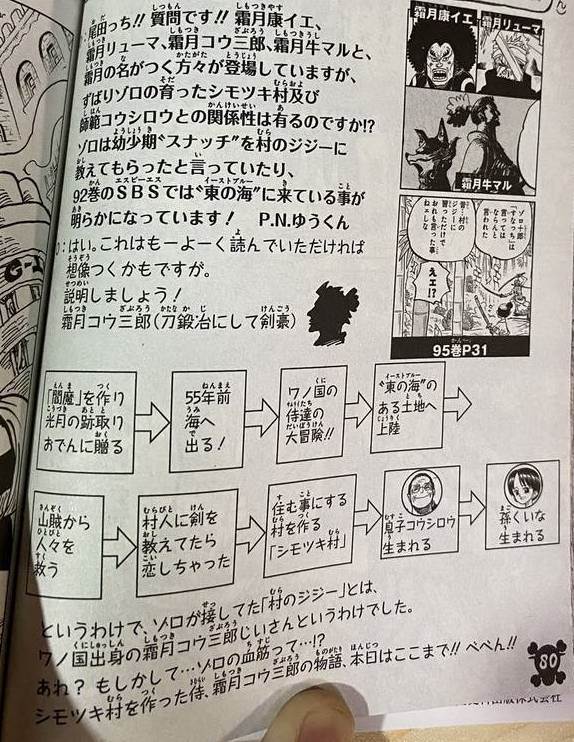 尾田っち!! 質問です!! 霜月康イエ、
霜月リューマ、霜月コウ三郎、霜月牛マルと、
霜月の名がつく方々が登場していますが、
ずばりゾロの育ったシモツキ村及び
師範コウシロウとの関係性は有るのですか!?
ゾロは幼少期“スナッチ”を村のジジーに
教えてもらったと言っていたり、
92巻のSBSでは“東の海”に来ている事が
明らかになっています! P.N.ゆうくん
:はい。これはもーよーく読んでいただければ
想像つくかもですが。
説明しましょう!
霜月コウ三郎(刀鍛冶にして剣豪)
霜月康イエ
霜月リューマ
霜月牛マル
ゾロ十郎
「すなっち」は
言っては
ならんと
言われた
昔…村の
ジジーに
習っただけで
おれも言った事
ねェしな
えェ!?
95巻P31
「閻魔」を作り
光月の跡取り
おでんに贈る
55年前
海へ
出る!
ワノ国の
侍達の
大冒険!!
“東の海”の
ある土地へ
上陸
山賊から
人々を
救う
村人に剣を
教えてたら
恋しちゃった
住む事にする
村を作る
「シモツキ村」
息子コウシロウ
生まれる
孫くいな
生まれる
というわけで、ゾロが接してた「村のジジー」とは、
ワノ国出身の霜月コウ三郎じいさんというわけでした。
あれ? もしかして…ゾロの血筋って…!?
シモツキ村を作った侍、霜月コウ三郎の物語、本日はここまで!! べべん!!
80